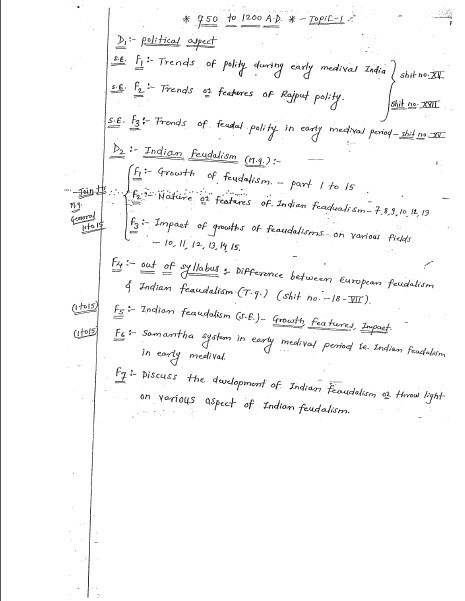 * 750 to 1200 A.D. * - TOPIC-1
D1:- political aspect
S.E. F1:- Trends of polity during early medival India
shit no. XV
S.E. F2:- Trends or features of Rajput polity.
shit no. XVII
S.E. F3:- Trends of feudal polity in early medival period - shit no XV
D2:- Indian Feudalism (M.q.):-
F1:- Growth of feudalism. - part 1 to 15
Join its
M.q.
General
1 to 15
F2:- Nature or features of Indian feadualism - 7,8,9,10,12,13
F3:- Impact of growths of feaudalisms on various fields
- 10, 11, 12, 13, 14, 15.
F4:- out of syllabus: Difference between European feudalism
& Indian feaudalism (T.q.) (shit no. - 18 - VII).
(1 to 15) F5:- Indian feaudalism (S.E.) - Growth, Features, Impact.
(1 to 15) F6:- Samantha system in early medival period ie. Indian feudalism
in early medival.
F7:- Discuss the development of Indian feaudalism or throw light
on various aspect of Indian feudalism.